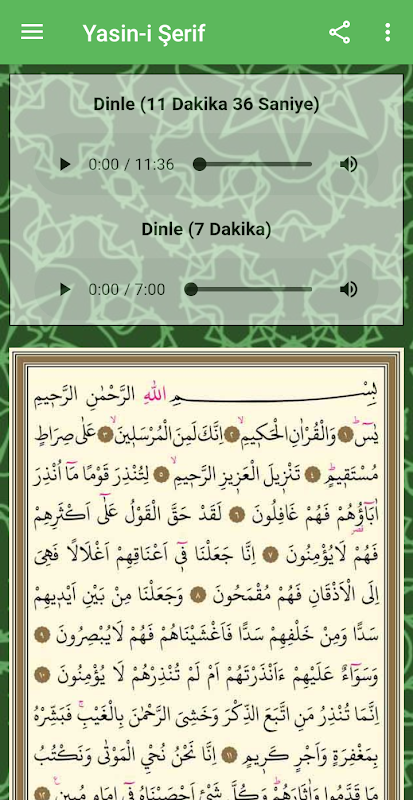 Yasin-i Şerif
Dinle (11 Dakika 36 Saniye)
0:00 / 11:36
Dinle (7 Dakika)
0:00 / 7:00
بِسْمِ اللهِ الرَّحْمٰنِ الرَّحٖيمِ
يٰسٓۜ ﴿١﴾ وَالْقُرْاٰنِ الْحَكٖيمِۙ ﴿٢﴾ اِنَّكَ لَمِنَ الْمُرْسَلٖينَۙ ﴿٣﴾ عَلٰى صِرَاطٍ
مُسْتَقٖيمٍۜ ﴿٤﴾ تَنْزٖيلَ الْعَزٖيزِ الرَّحٖيمِۙ ﴿٥﴾ لِتُنْذِرَ قَوْمًا مَٓا اُنْذِرَ
اٰبَٓاؤُ۬هُمْ فَهُمْ غَافِلُونَ ﴿٦﴾ لَقَدْ حَقَّ الْقَوْلُ عَلٰٓى اَكْثَرِهِمْ
فَهُمْ لَا يُؤْمِنُونَ ﴿٧﴾ اِنَّا جَعَلْنَا فٖٓى اَعْنَاقِهِمْ اَغْلَالًا فَهِىَ
اِلَى الْاَذْقَانِ فَهُمْ مُقْمَحُونَ ﴿٨﴾ وَجَعَلْنَا مِنْ بَيْنِ اَيْدٖيهِمْ
سَدًّا وَمِنْ خَلْفِهِمْ سَدًّا فَاَغْشَيْنَاهُمْ فَهُمْ لَا يُبْصِرُونَ ﴿٩﴾
وَسَوَٓاءٌ عَلَيْهِمْ ءَاَنْذَرْتَهُمْ اَمْ لَمْ تُنْذِرْهُمْ لَا يُؤْمِنُونَ ﴿١٠﴾
اِنَّمَا تُنْذِرُ مَنِ اتَّبَعَ الذِّكْرَ وَخَشِىَ الرَّحْمٰنَ بِالْغَيْبِۚ فَبَشِّرْهُ
بِمَغْفِرَةٍ وَاَجْرٍ كَرٖيمٍ ﴿١١﴾ اِنَّا نَحْنُ نُحْىِ الْمَوْتٰى وَنَكْتُبُ
مَا قَدَّمُوا وَاٰثَارَهُمْۜ وَكُلَّ شَىْءٍ اَحْصَيْنَاهُ فٖٓى اِمَامٍ مُبٖينٍ۟ ﴿١٢﴾